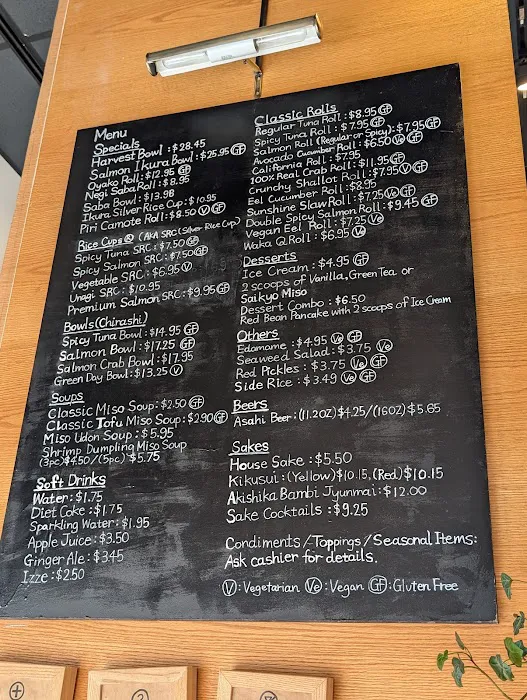 Menu
Specials
Harvest Bowl : $28.45
Salmon Ikura Bowl : $25.95 GF
Oyako Roll : $12.95 GF
Negi Saba Roll : $8.95
Saba Bowl : $13.98
Ikura Silver Rice Cup : $10.95
Piri Camote Roll : $8.50 V GF
Rice Cups ® (AKA SRC (Silver Rice Cup)
Spicy Tuna SRC : $7.50 GF
Spicy Salmon SRC : $7.50 GF
Vegetable SRC : $6.95 V
Unagi SRC : $10.95
Premium Salmon SRC : $9.95 GF
Bowls (Chirashi)
Spicy Tuna Bowl : $14.95 GF
Salmon Bowl : $17.25 GF
Salmon Crab Bowl : $17.95
Green Day Bowl : $13.25 V
Soups
Classic Miso Soup : $2.50 GF
Classic Tofu Miso Soup : $2.90 GF
Miso Udon Soup : $5.95
Shrimp Dumpling Miso Soup
(3pc) $4.50 / (5pc) $5.75
Soft Drinks
Water : $1.75
Diet Coke : $1.75
Sparkling Water : $1.95
Apple Juice : $3.50
Ginger Ale : $3.45
Izze : $2.50
Classic Rolls
Regular Tuna Roll : $8.95 GF
Spicy Tuna Roll : $7.95 GF
Salmon Roll (Regular or Spicy) : $7.95 GF
Avocado Cucumber Roll : $6.50 Ve GF
California Roll : $7.95
100% Real Crab Roll : $11.95 GF
Crunchy Shallot Roll : $7.95 V GF
Eel Cucumber Roll : $8.95
Sunshine Slaw Roll : $7.25 Ve GF
Double Spicy Salmon Roll : $9.45 GF
Vegan Eel Roll : $7.25 Ve
Waka Q Roll : $6.95 Ve
Desserts
Ice Cream : $4.95 GF
2 scoops of Vanilla, Green Tea or
Saikyo Miso
Dessert Combo : $6.50
Red Bean Pancake with 2 scoops of Ice Cream
Others
Edamame : $4.95 Ve GF
Seaweed Salad : $3.75 Ve
Red Pickles : $3.75 Ve GF
Side Rice : $3.49 Ve GF
Beers
Asahi Beer : (11.2OZ) $4.25 / (16OZ) $5.65
Sakes
House Sake : $5.50
Kikusui : (Yellow) $10.15, (Red) $10.15
Akishika Bambi Jyunmai : $12.00
Sake Cocktails : $9.25
Condiments / Toppings / Seasonal Items:
Ask cashier for details.
V : Vegetarian Ve : Vegan GF : Gluten Free